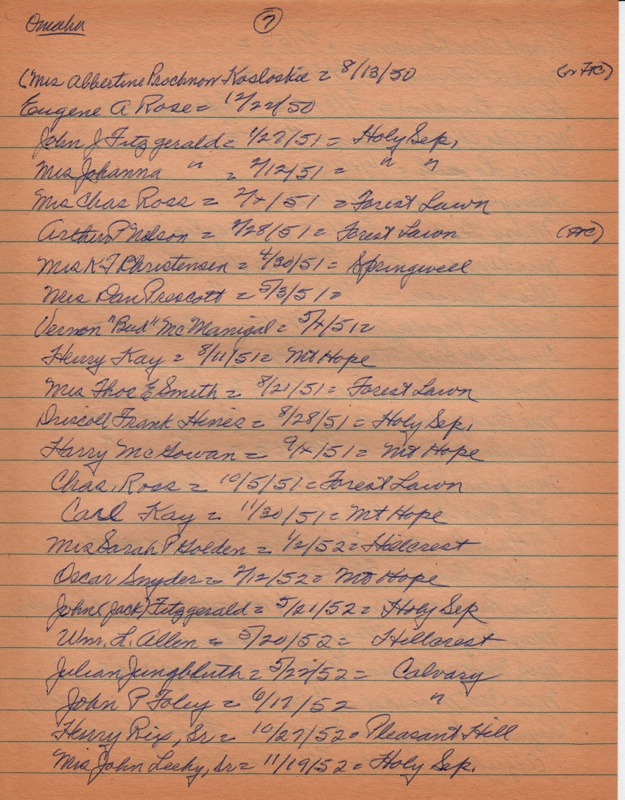 Omaha 7
(Mrs Abbertine Prochnow Kosloskie = 8/13/50 (or FtC)
Eugene A Rose = 12/22/50
John J Fitzgerald = 1/27/51 = Holy Sep.
Mrs Johanna " = 2/12/51 = " "
Mrs Chas Ross = 2/x/51 = Forest Lawn
Arthur P Nelson = 2/28/51 = Forest Lawn (FtC)
Mrs K T Christensen = 4/30/51 = Springwell
Mrs Dan Prescott = 5/3/51 =
Vernon "Bud" McManigal = 5/x/51 =
Henry Kay = 8/11/51 = Mt Hope
Mrs Thos E Smith = 8/21/51 = Forest Lawn
Driscoll Frank Hines = 8/28/51 = Holy Sep.
Harry McGowan = 9/x/51 = Mt Hope
Chas. Ross = 10/5/51 = Forest Lawn
Carl Kay = 11/30/51 = Mt Hope
Mrs Sarah P Golden = 1/2/52 = Hillcrest
Oscar Snyder = 2/12/52 = Mt Hope
John (Jack) Fitzgerald = 5/21/52 = Holy Sep
Wm. L. Allen = 5/20/52 = Hillcrest
Julian Jungbluth = 5/22/52 = Calvary
John P Foley = 6/17/52 "
Henry Rix, Sr = 10/27/52 = Pleasant Hill
Mrs John Leeky, Sr = 11/19/52 = Holy Sep.